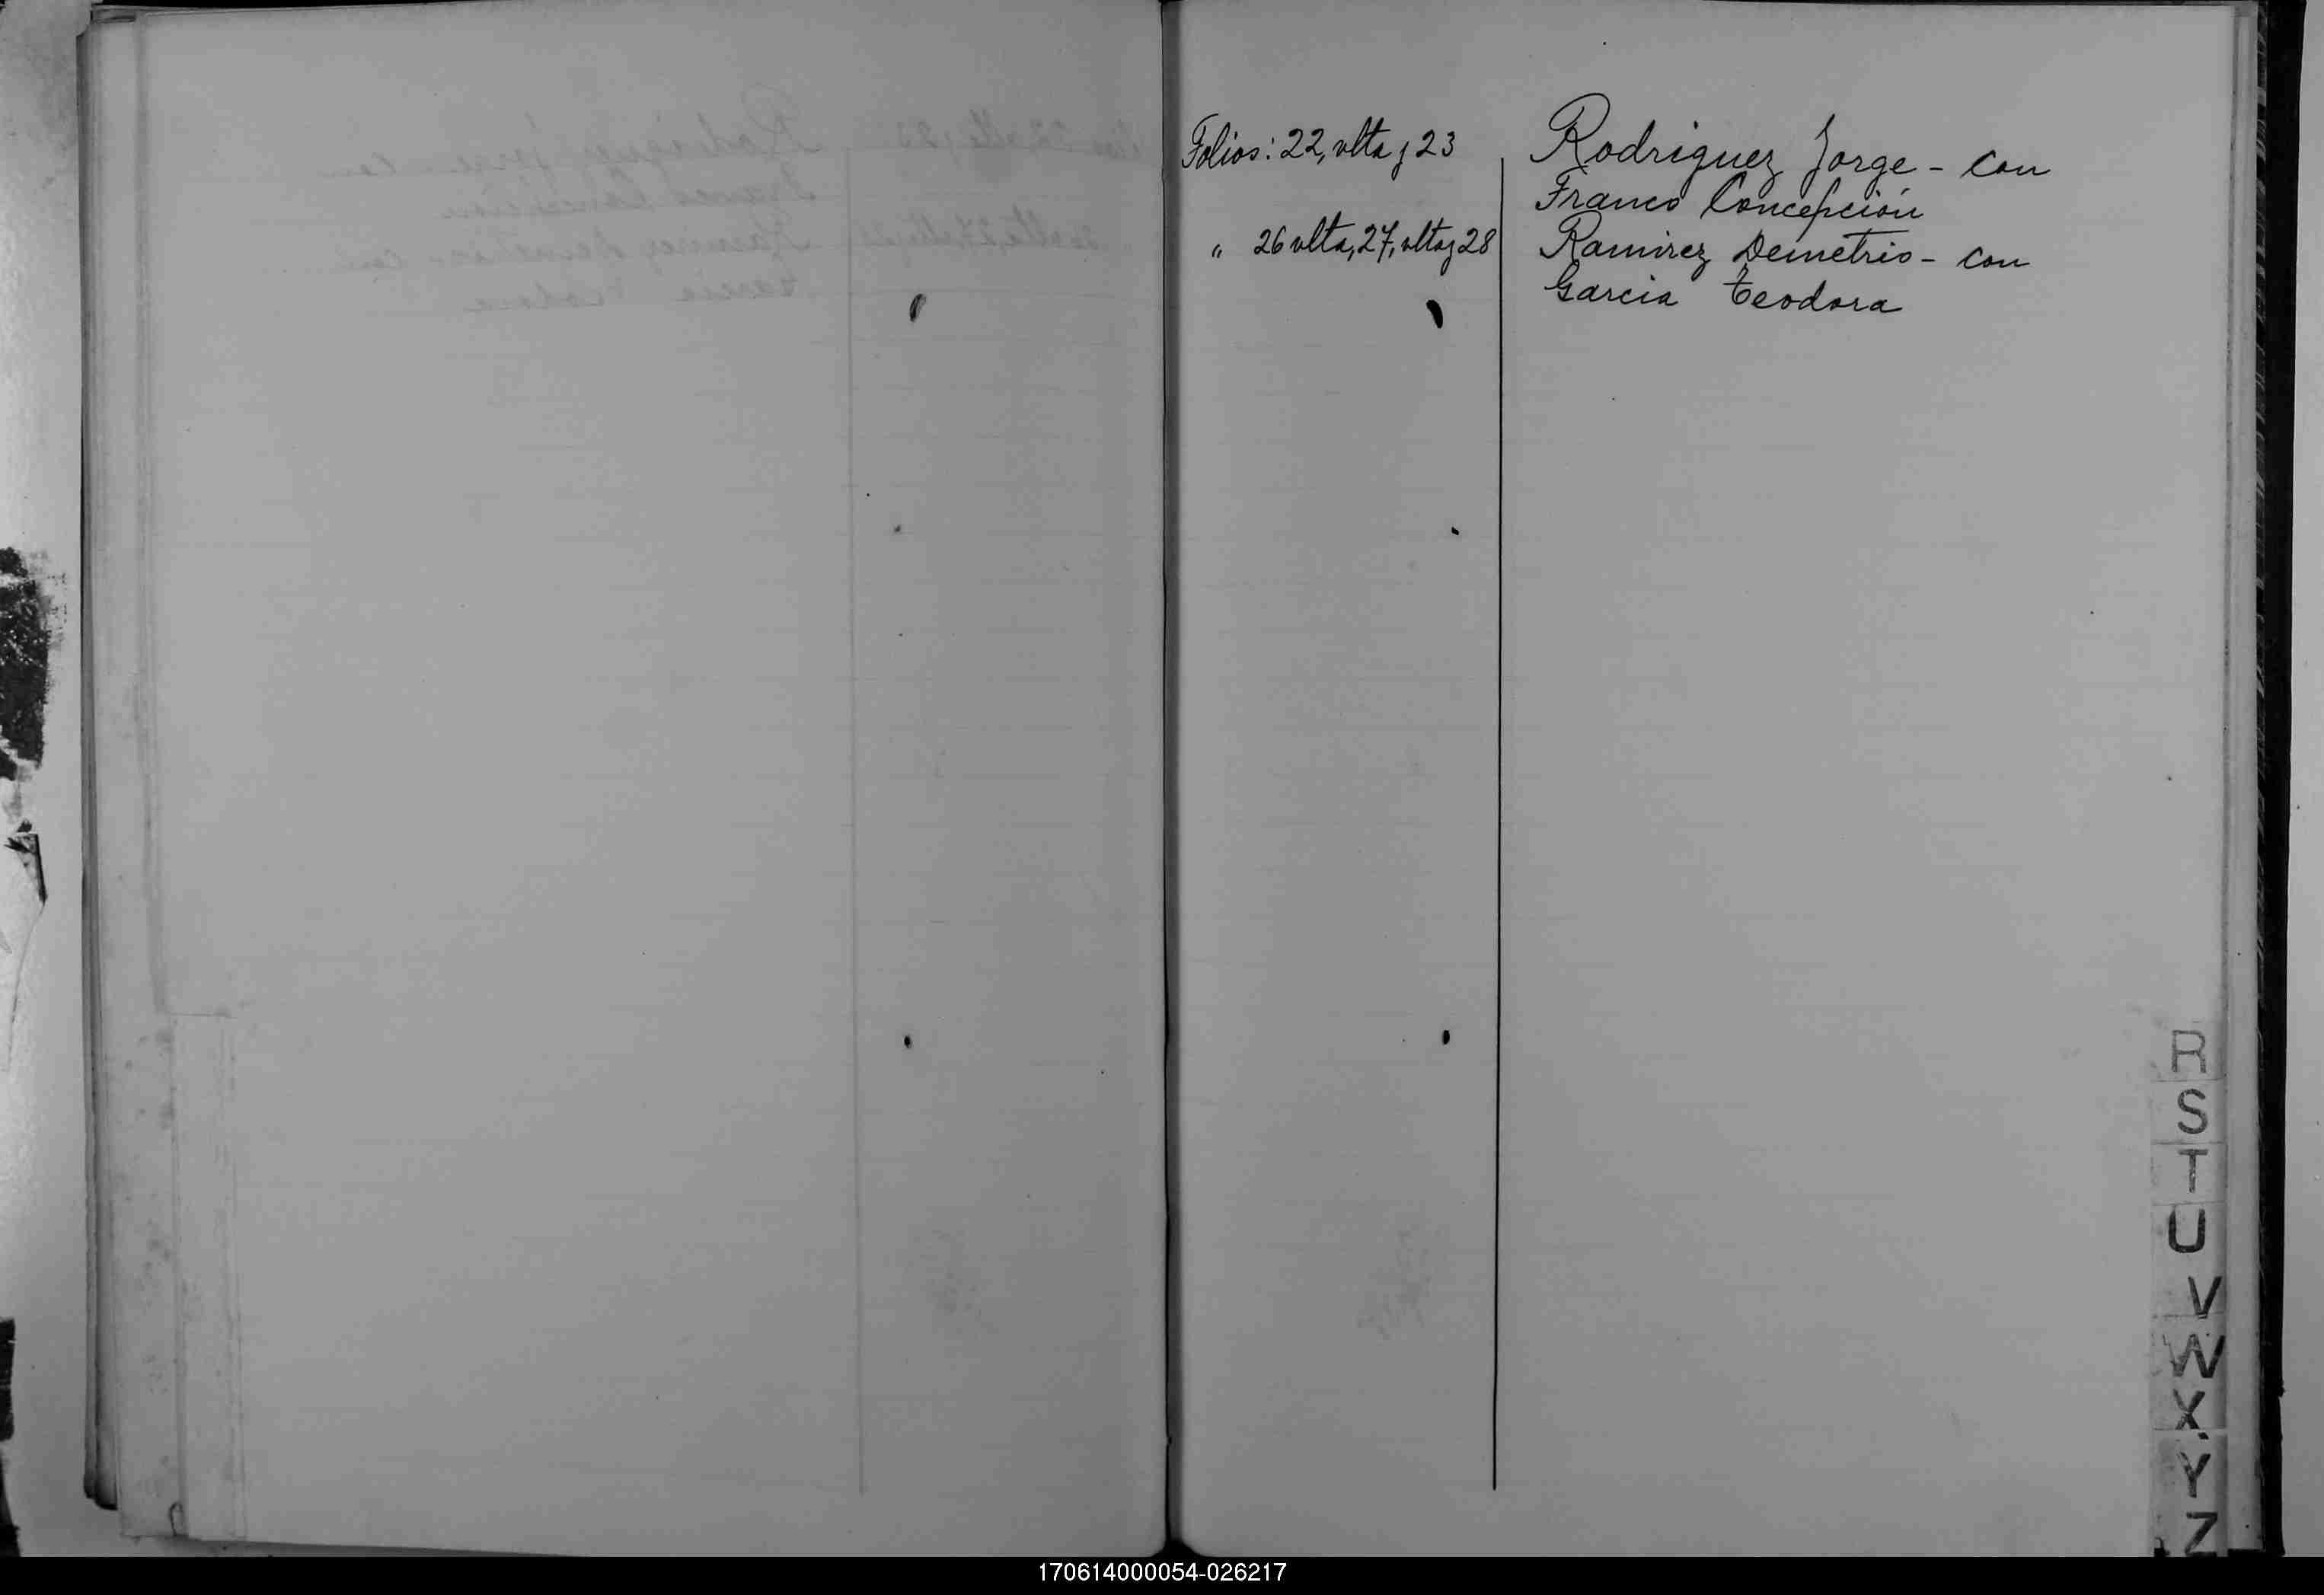 Folios: 22, vlta y 23 Rodriguez Jorge - con
Franco Concepción
" 26 vlta, 27, vlta y 28 Ramirez Demetrio - con
Garcia Teodora
R
S
T
U
V
W
X
Y
Z
170614000054-026217